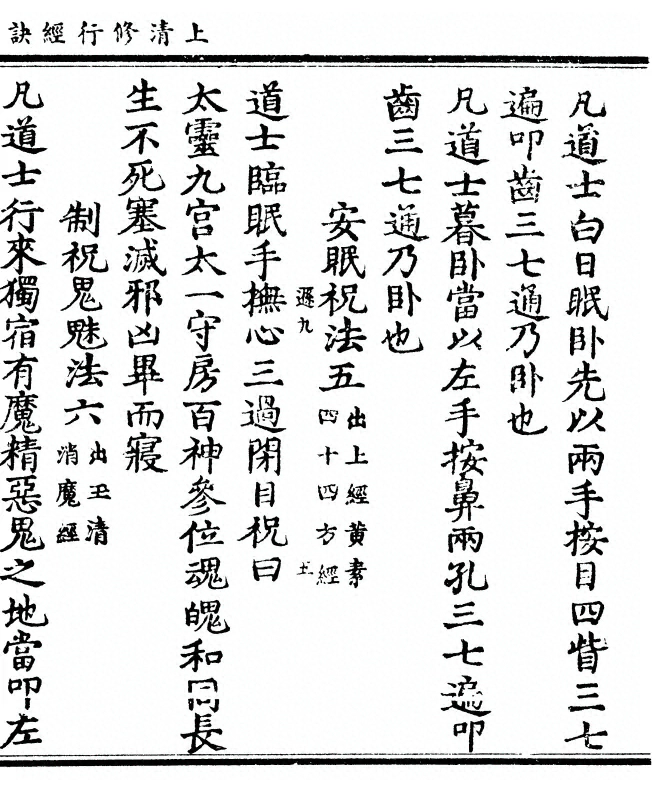 上清修行經訣
凡道士白日眠卧先以兩手按目四眥三七
遍叩齒三七通乃卧也
凡道士暮卧當以左手按鼻兩孔三七遍叩
齒三七通乃卧也
安眠祝法五 出上經黄素四十四方經
遜九 五
道士臨眠手撫心三過閉目祝曰
太靈九宫太一守房百神參位魂魄和同長
生不死塞滅邪凶畢而寢
制祝鬼魅法六 出玉清消魔經
凡道士行來獨宿有魔精惡鬼之地當叩左